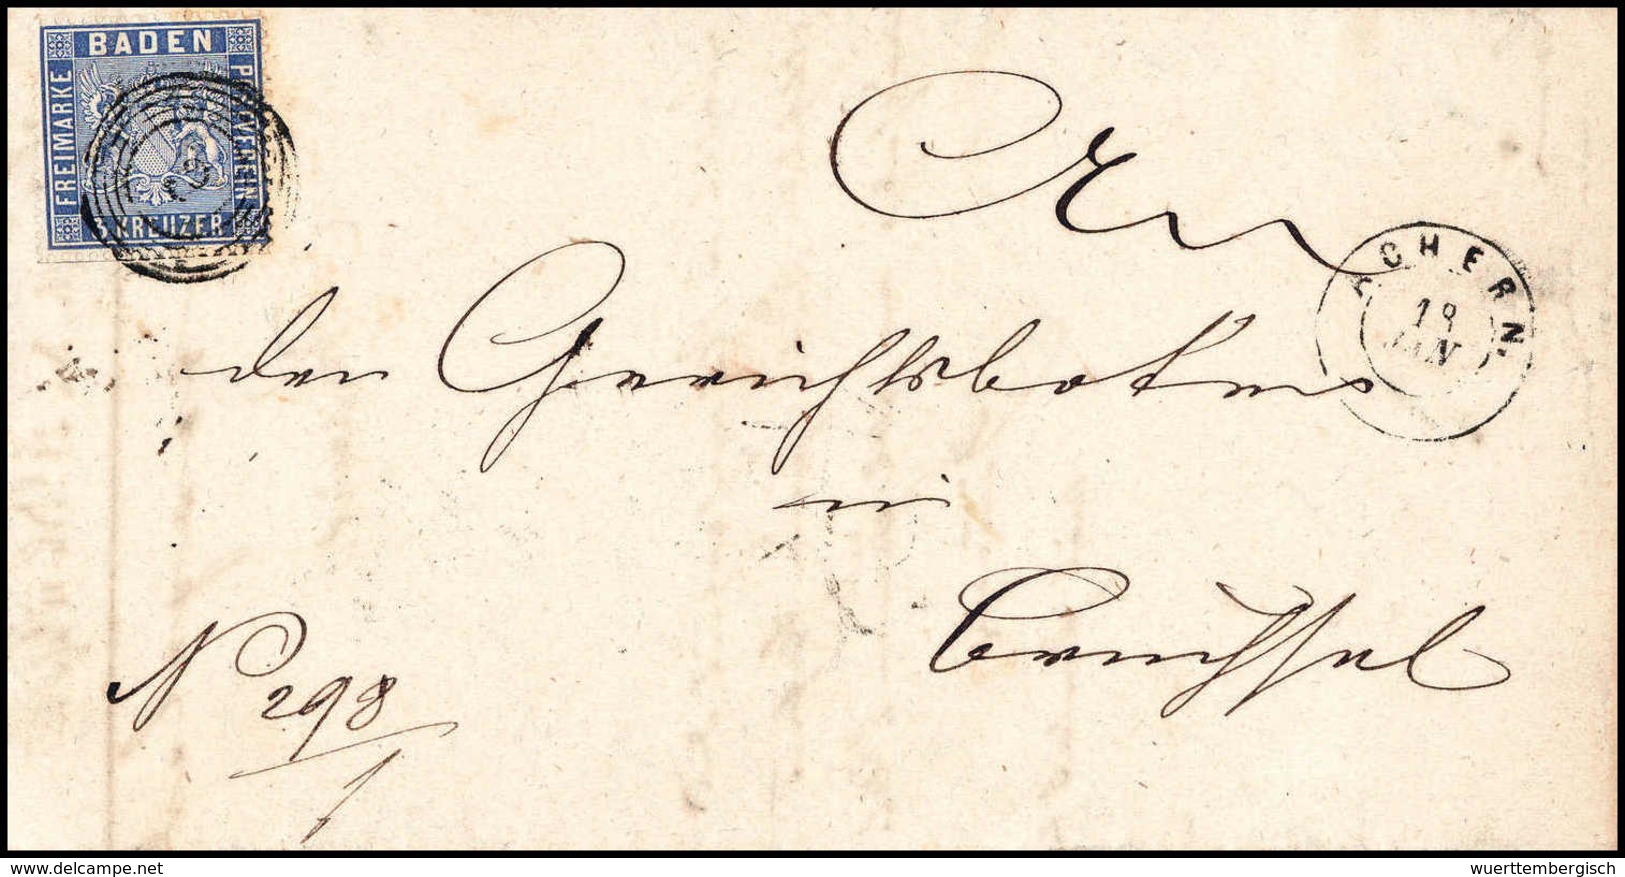 BADEN
FREIMARKE
POSTVEREIN
3 KREUZER
An
den Gerichtsboten
in
ACHERN
18
JAN
No 298
1
wuerttembergisch